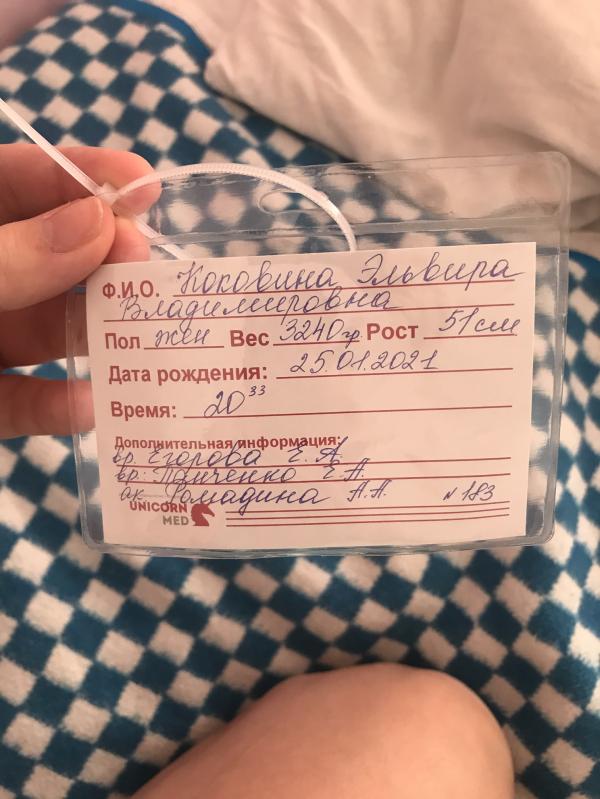 Ф.И.О. Коковина Эльвира
Владимировна
Пол жен Вес 3240гр Рост 51см
Дата рождения: 25.01.2021
Время: 20³³
Дополнительная информация:
вр. Егорова Е.А.
вр. Панченко Е.А.
ак. Ромадина А.А. N 183
UNICORN
MED